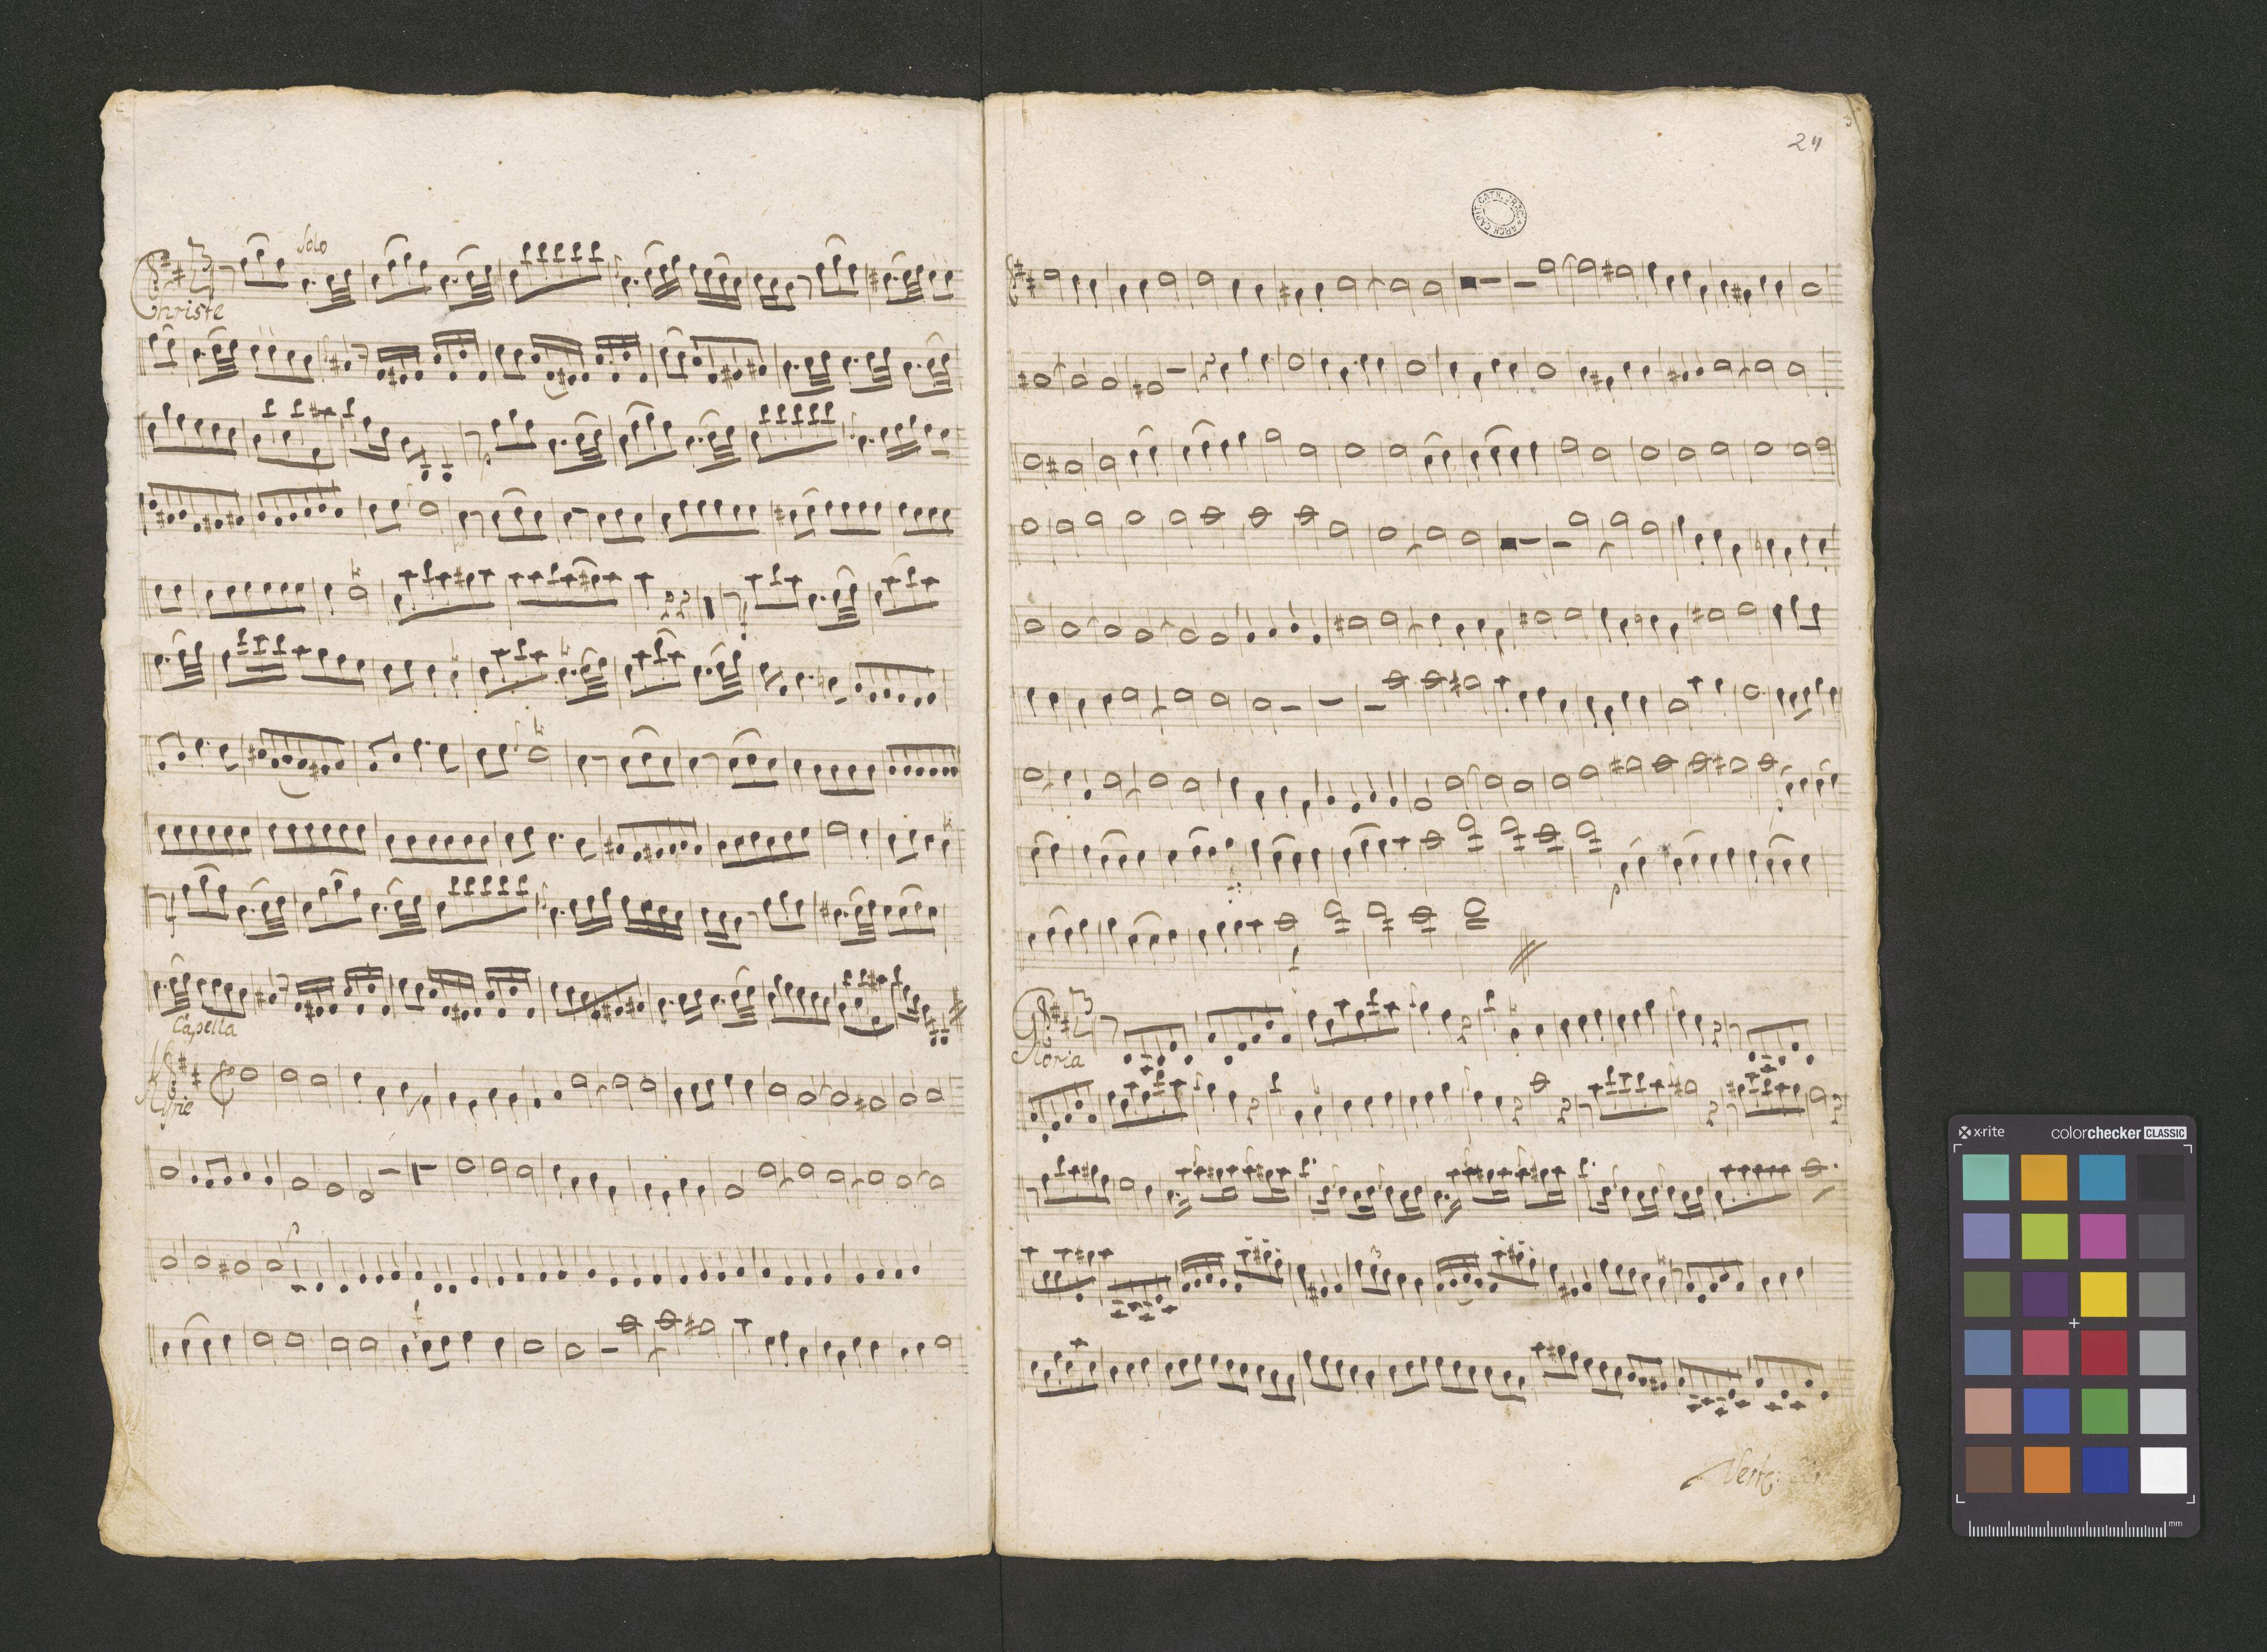 Solo
Christe
Capella
Kyrie
24
ARCH. CAPIT. CATH.
Gloria
Verte:
x-rite
colorchecker CLASSIC
mm